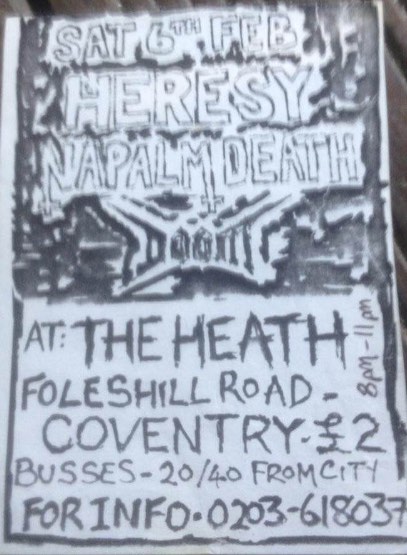 SAT 6TH FEB
HERESY
NAPALM DEATH
DOOM
AT: THE HEATH
8pm-11pm
FOLESHILL ROAD-
COVENTRY-£2
BUSSES-20/40 FROM CITY
FOR INFO-0203-618037